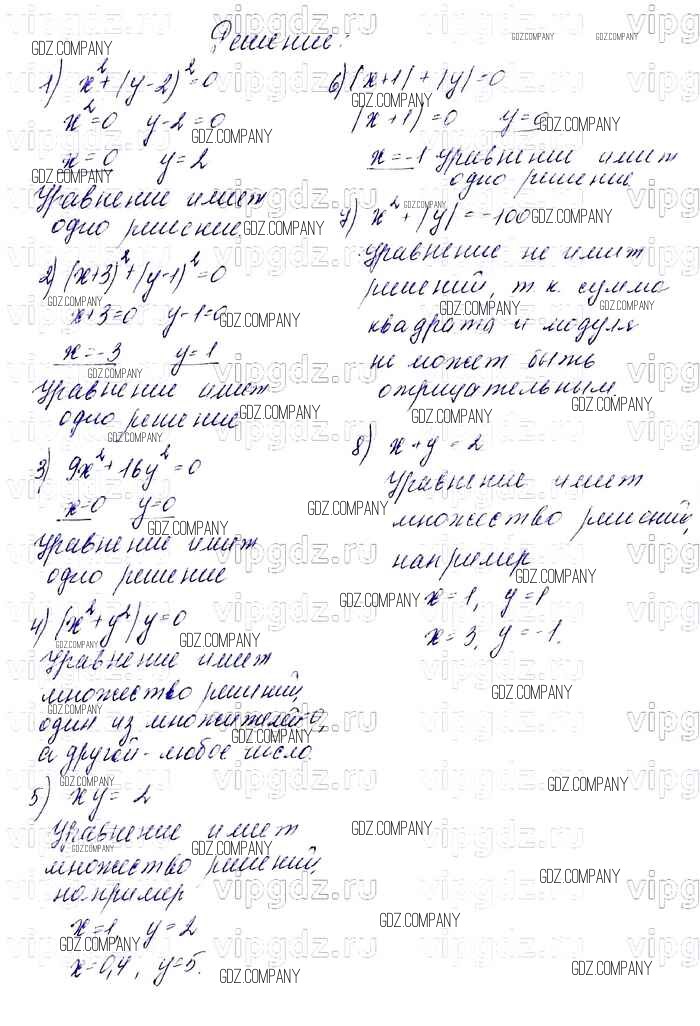 Решение:
1) x² + (y-2)² = 0
x² = 0 y-2 = 0
x = 0 y = 2
Уравнение имеет
одно решение
2) (x+3)² + (y-1)² = 0
x+3=0 y-1=0
x=-3 y=1
Уравнение имеет
одно решение
3) 9x² + 16y² = 0
x=0 y=0
Уравнение имеет
одно решение
4) (x² + y²)y = 0
Уравнение имеет
множество решений,
один из множителей 0,
а другой - любое число.
5) xy = 2
Уравнение имеет
множество решений,
например
x=1, y=2
x=0,4, y=5.
6) |x+1| + |y| = 0
|x+1| = 0 y=0
x=-1 Уравнение имеет
одно решение
7) x² + |y| = -100
Уравнение не имеет
решений, т.к. сумма
квадрата и модуля
не может быть
отрицательным.
8) x+y = 2
Уравнение имеет
множество решений,
например
x=1, y=1
x=3, y=-1.
GDZ.COMPANY
vipgdz.ru